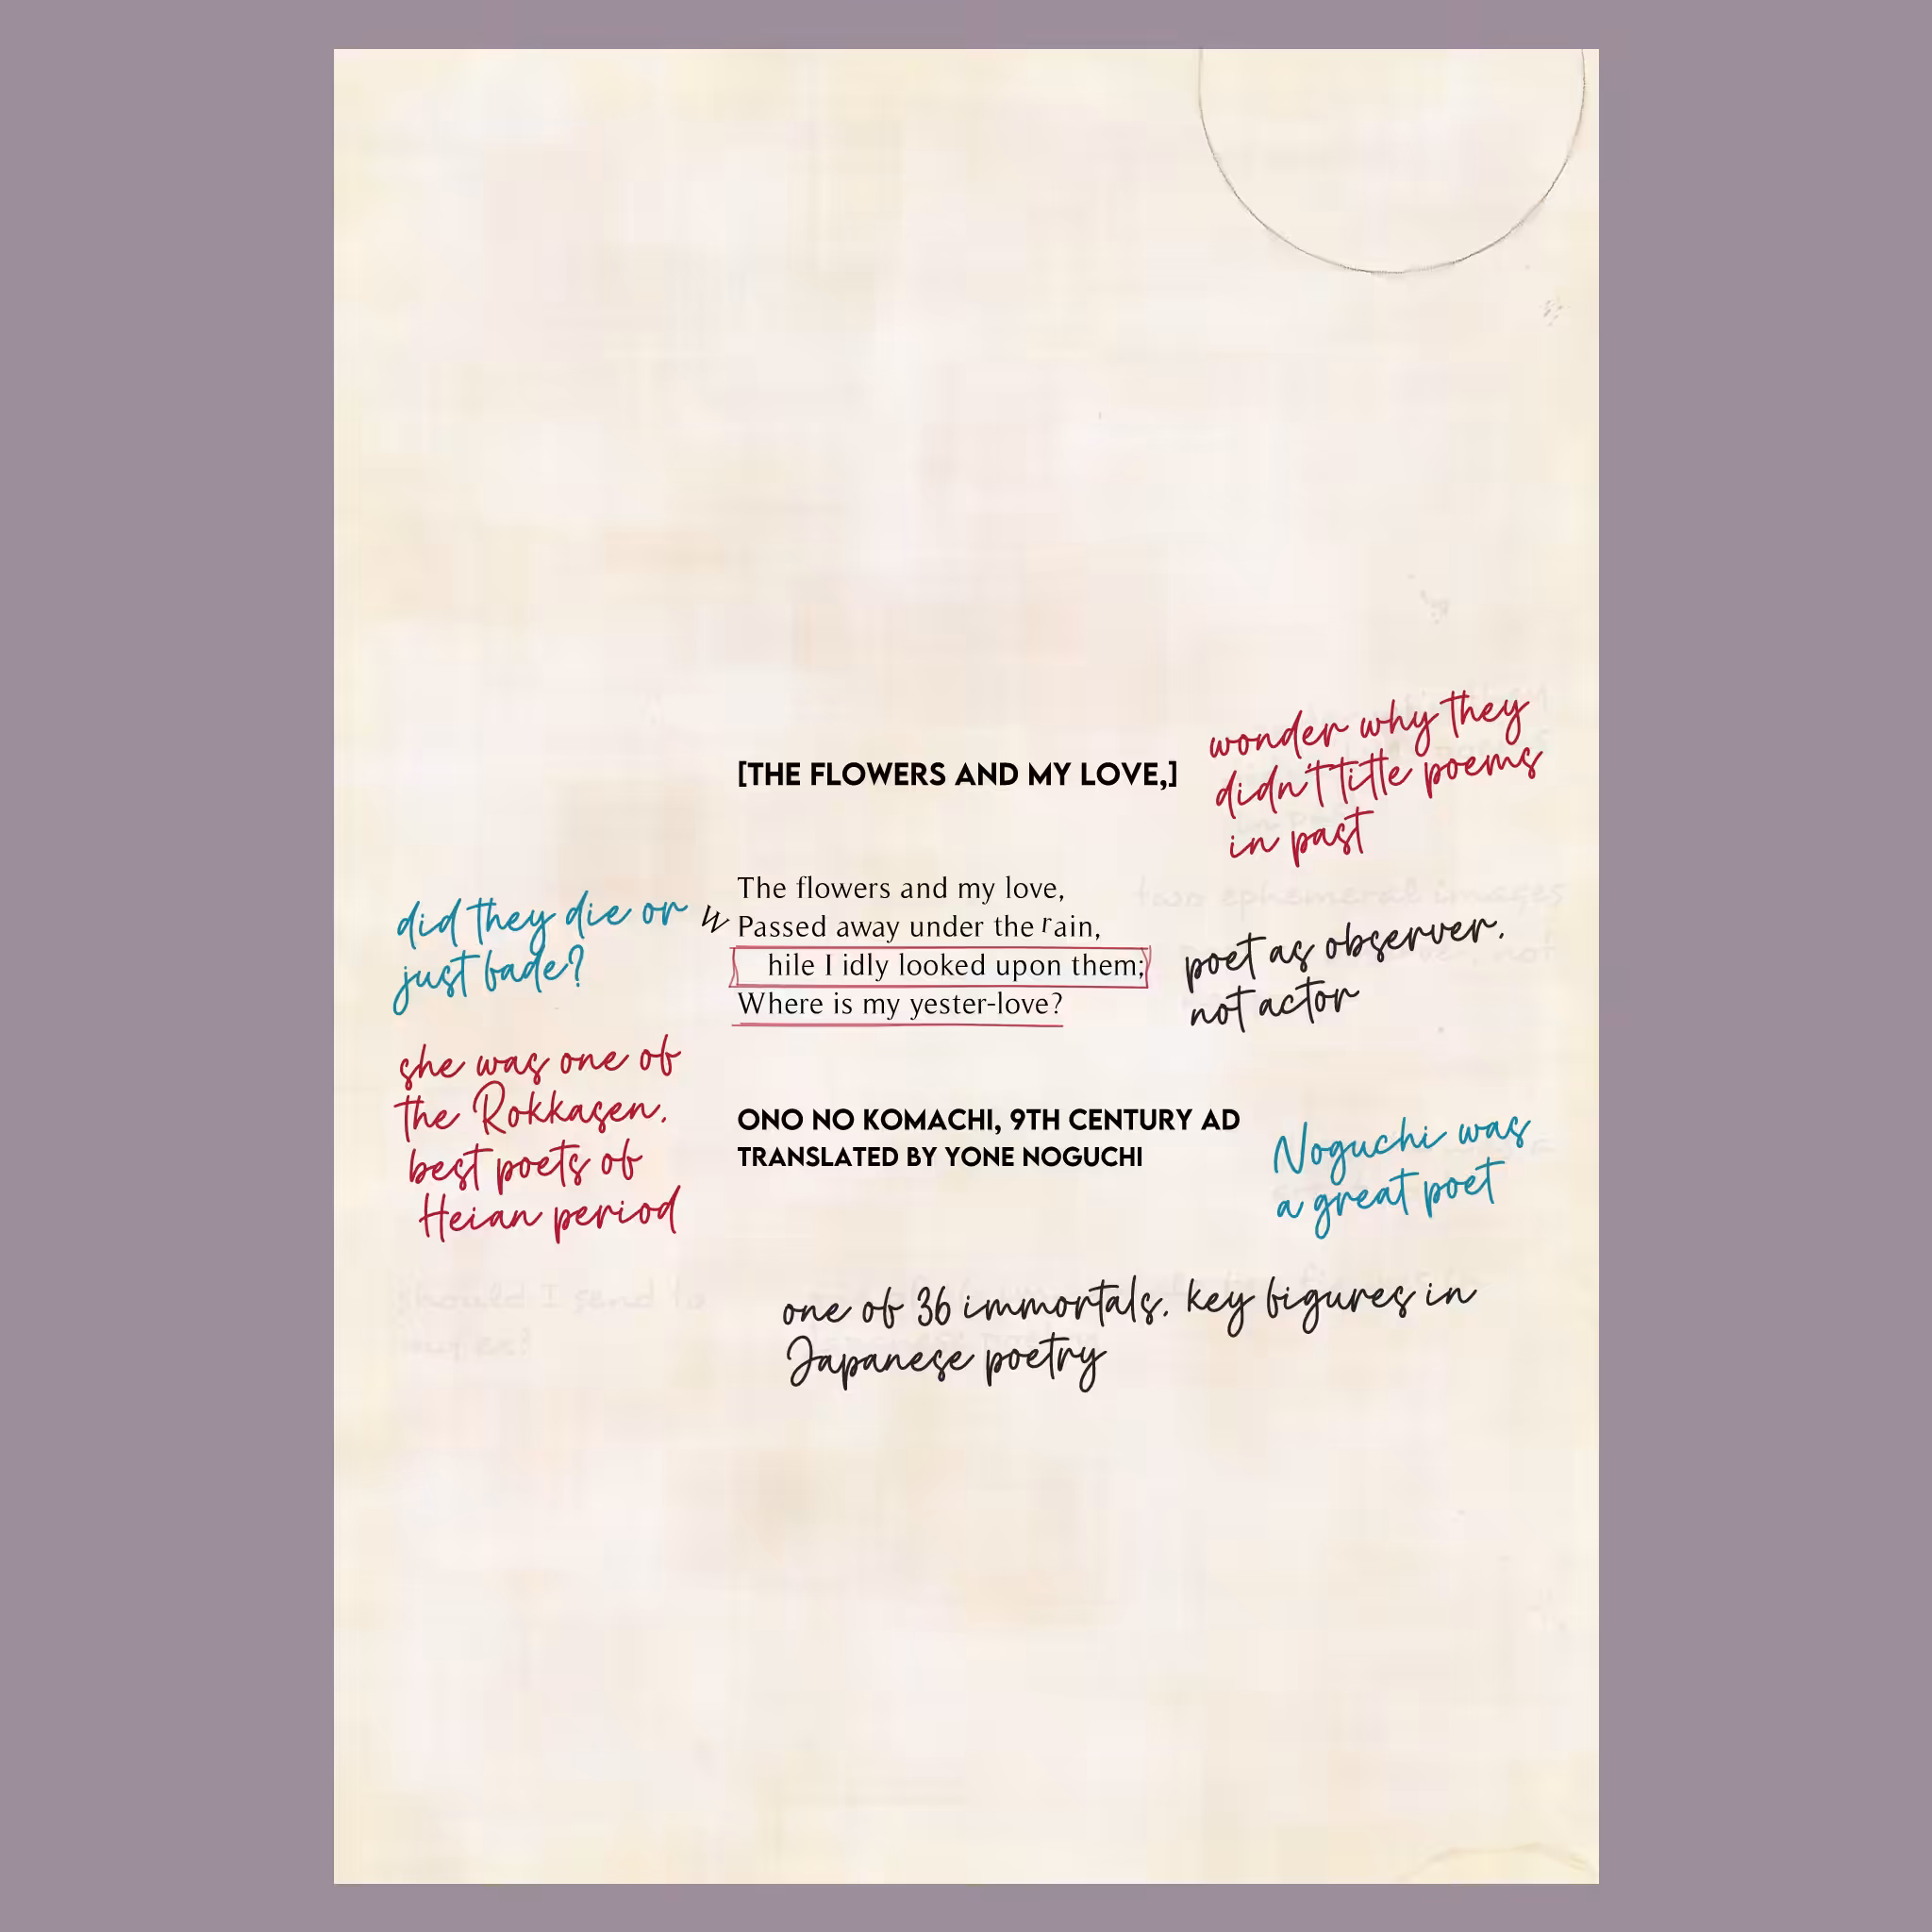 wonder why they
didn't title poems
in past
[THE FLOWERS AND MY LOVE,]
The flowers and my love,
Passed away under the rain,
W
hile I idly looked upon them;
Where is my yester-love?
two ephemeral images
did they die or
just fade?
poet as observer.
not actor
she was one of
the Rokkasen.
best poets of
Heian period
ONO NO KOMACHI, 9TH CENTURY AD
TRANSLATED BY YONE NOGUCHI
Noguchi was
a great poet
should I send to
my ex?
one of 36 immortals. key figures in
Japanese poetry